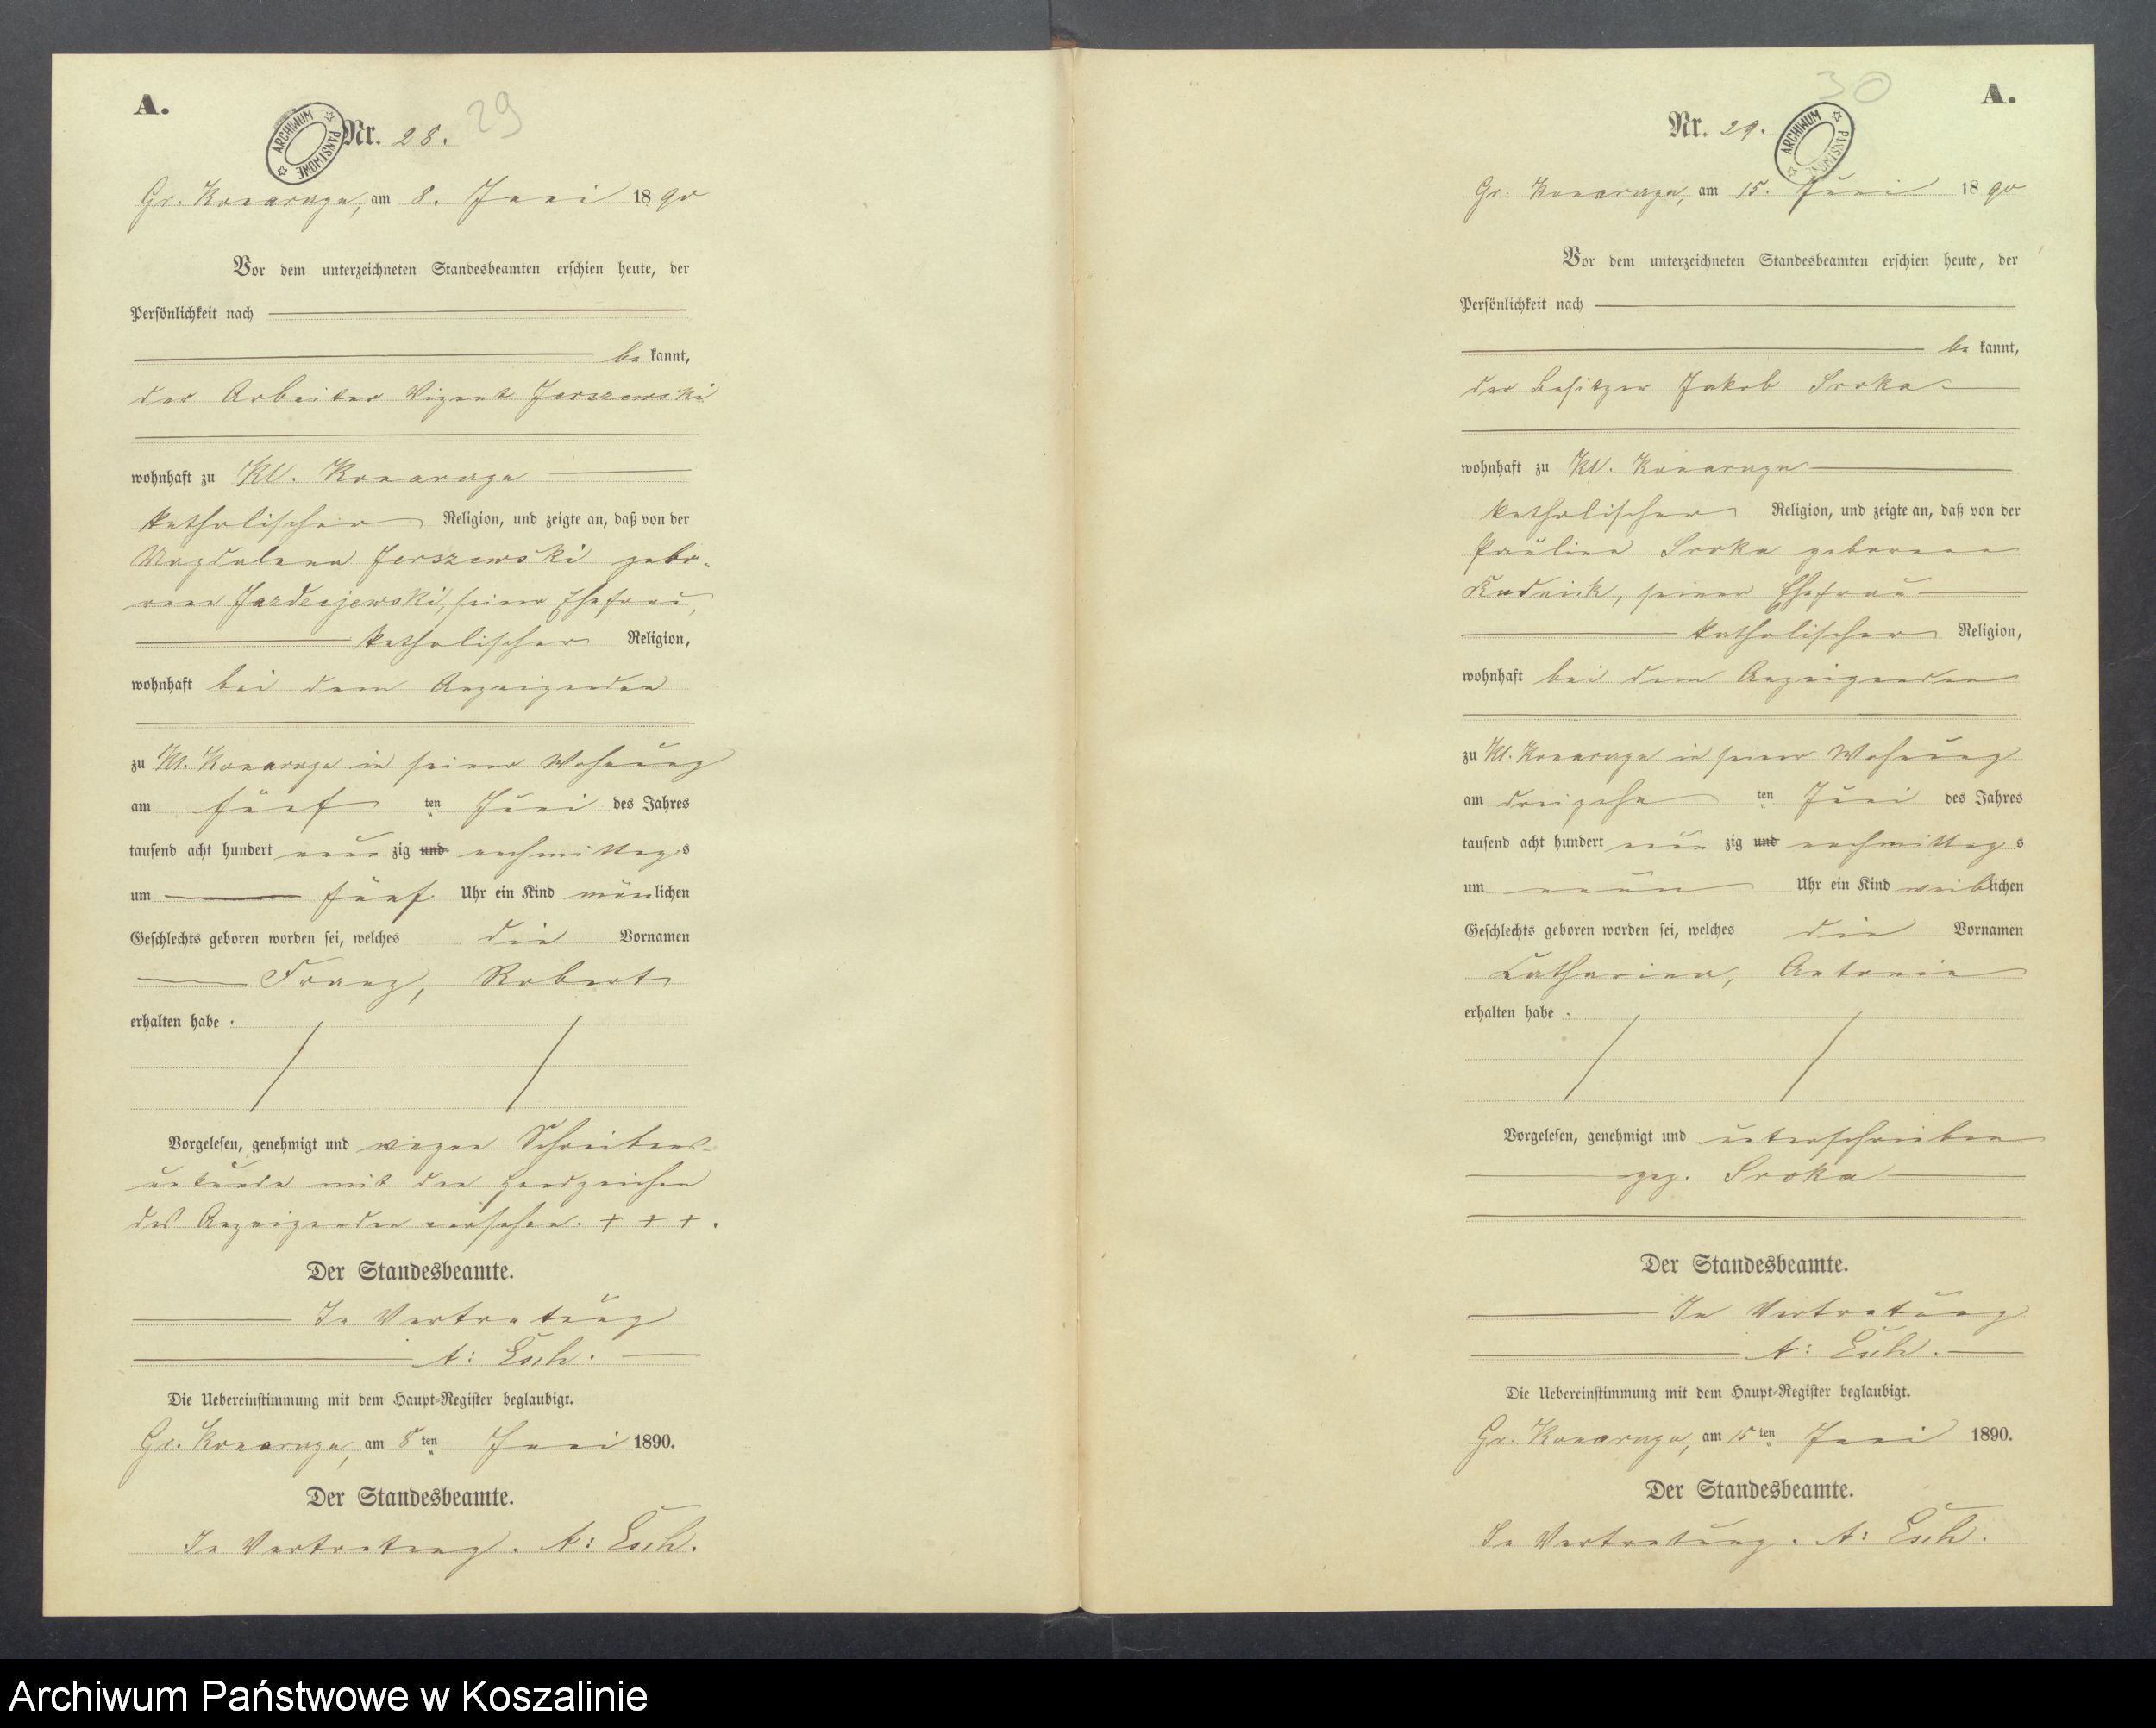 A.
29
Nr. 28.
ARCHIWUM PAŃSTWOWE
Gr. Konarzyn, am 8. Juni 1890
Vor dem unterzeichneten Standesbeamten erschien heute, der
Persönlichkeit nach
be kannt,
der Arbeiter Vizent Jerszewski
wohnhaft zu Kl. Konarzyn
katholischer Religion, und zeigte an, daß von der
Magdalena Jerszewski gebo-
rene seiner Ehefrau,
katholischer Religion,
wohnhaft bei dem Anzeigenden
zu Kl. Konarzyn in seiner Wohnung
am fünf ten Juni des Jahres
tausend acht hundert neun zig und nachmittags
um fünf Uhr ein Kind mänlichen
Geschlechts geboren worden sei, welches die Vornamen
Franz, Robert
erhalten habe.
Vorgelesen, genehmigt und wegen Schreibens-
unkunde mit den Handzeichen
des Anzeigenden versehen. + + +.
Der Standesbeamte.
In Vertretung
A: Esch.
Die Uebereinstimmung mit dem Haupt-Register beglaubigt.
Gr. Konarzyn, am 8ten Juni 1890.
Der Standesbeamte.
In Vertretung. A: Esch.
30
A.
Nr. 29.
ARCHIWUM PAŃSTWOWE
Gr. Konarzyn, am 15. Juni 1890
Vor dem unterzeichneten Standesbeamten erschien heute, der
Persönlichkeit nach
be kannt,
der Besitzer Jakob Sroka
wohnhaft zu Kl. Konarzyn
katholischer Religion, und zeigte an, daß von der
Pauline Sroka geborene
Rudnick, seiner Ehefrau
katholischer Religion,
wohnhaft bei dem Anzeigenden
zu Kl. Konarzyn in seiner Wohnung
am dreizehn ten Juni des Jahres
tausend acht hundert neun zig und nachmittags
um neun Uhr ein Kind weiblichen
Geschlechts geboren worden sei, welches die Vornamen
Catharina, Antonie
erhalten habe.
Vorgelesen, genehmigt und unterschrieben
gez. Sroka
Der Standesbeamte.
In Vertretung
A: Esch.
Die Uebereinstimmung mit dem Haupt-Register beglaubigt.
Gr. Konarzyn, am 15ten Juni 1890.
Der Standesbeamte.
In Vertretung. A: Esch.
Archiwum Państwowe w Koszalinie